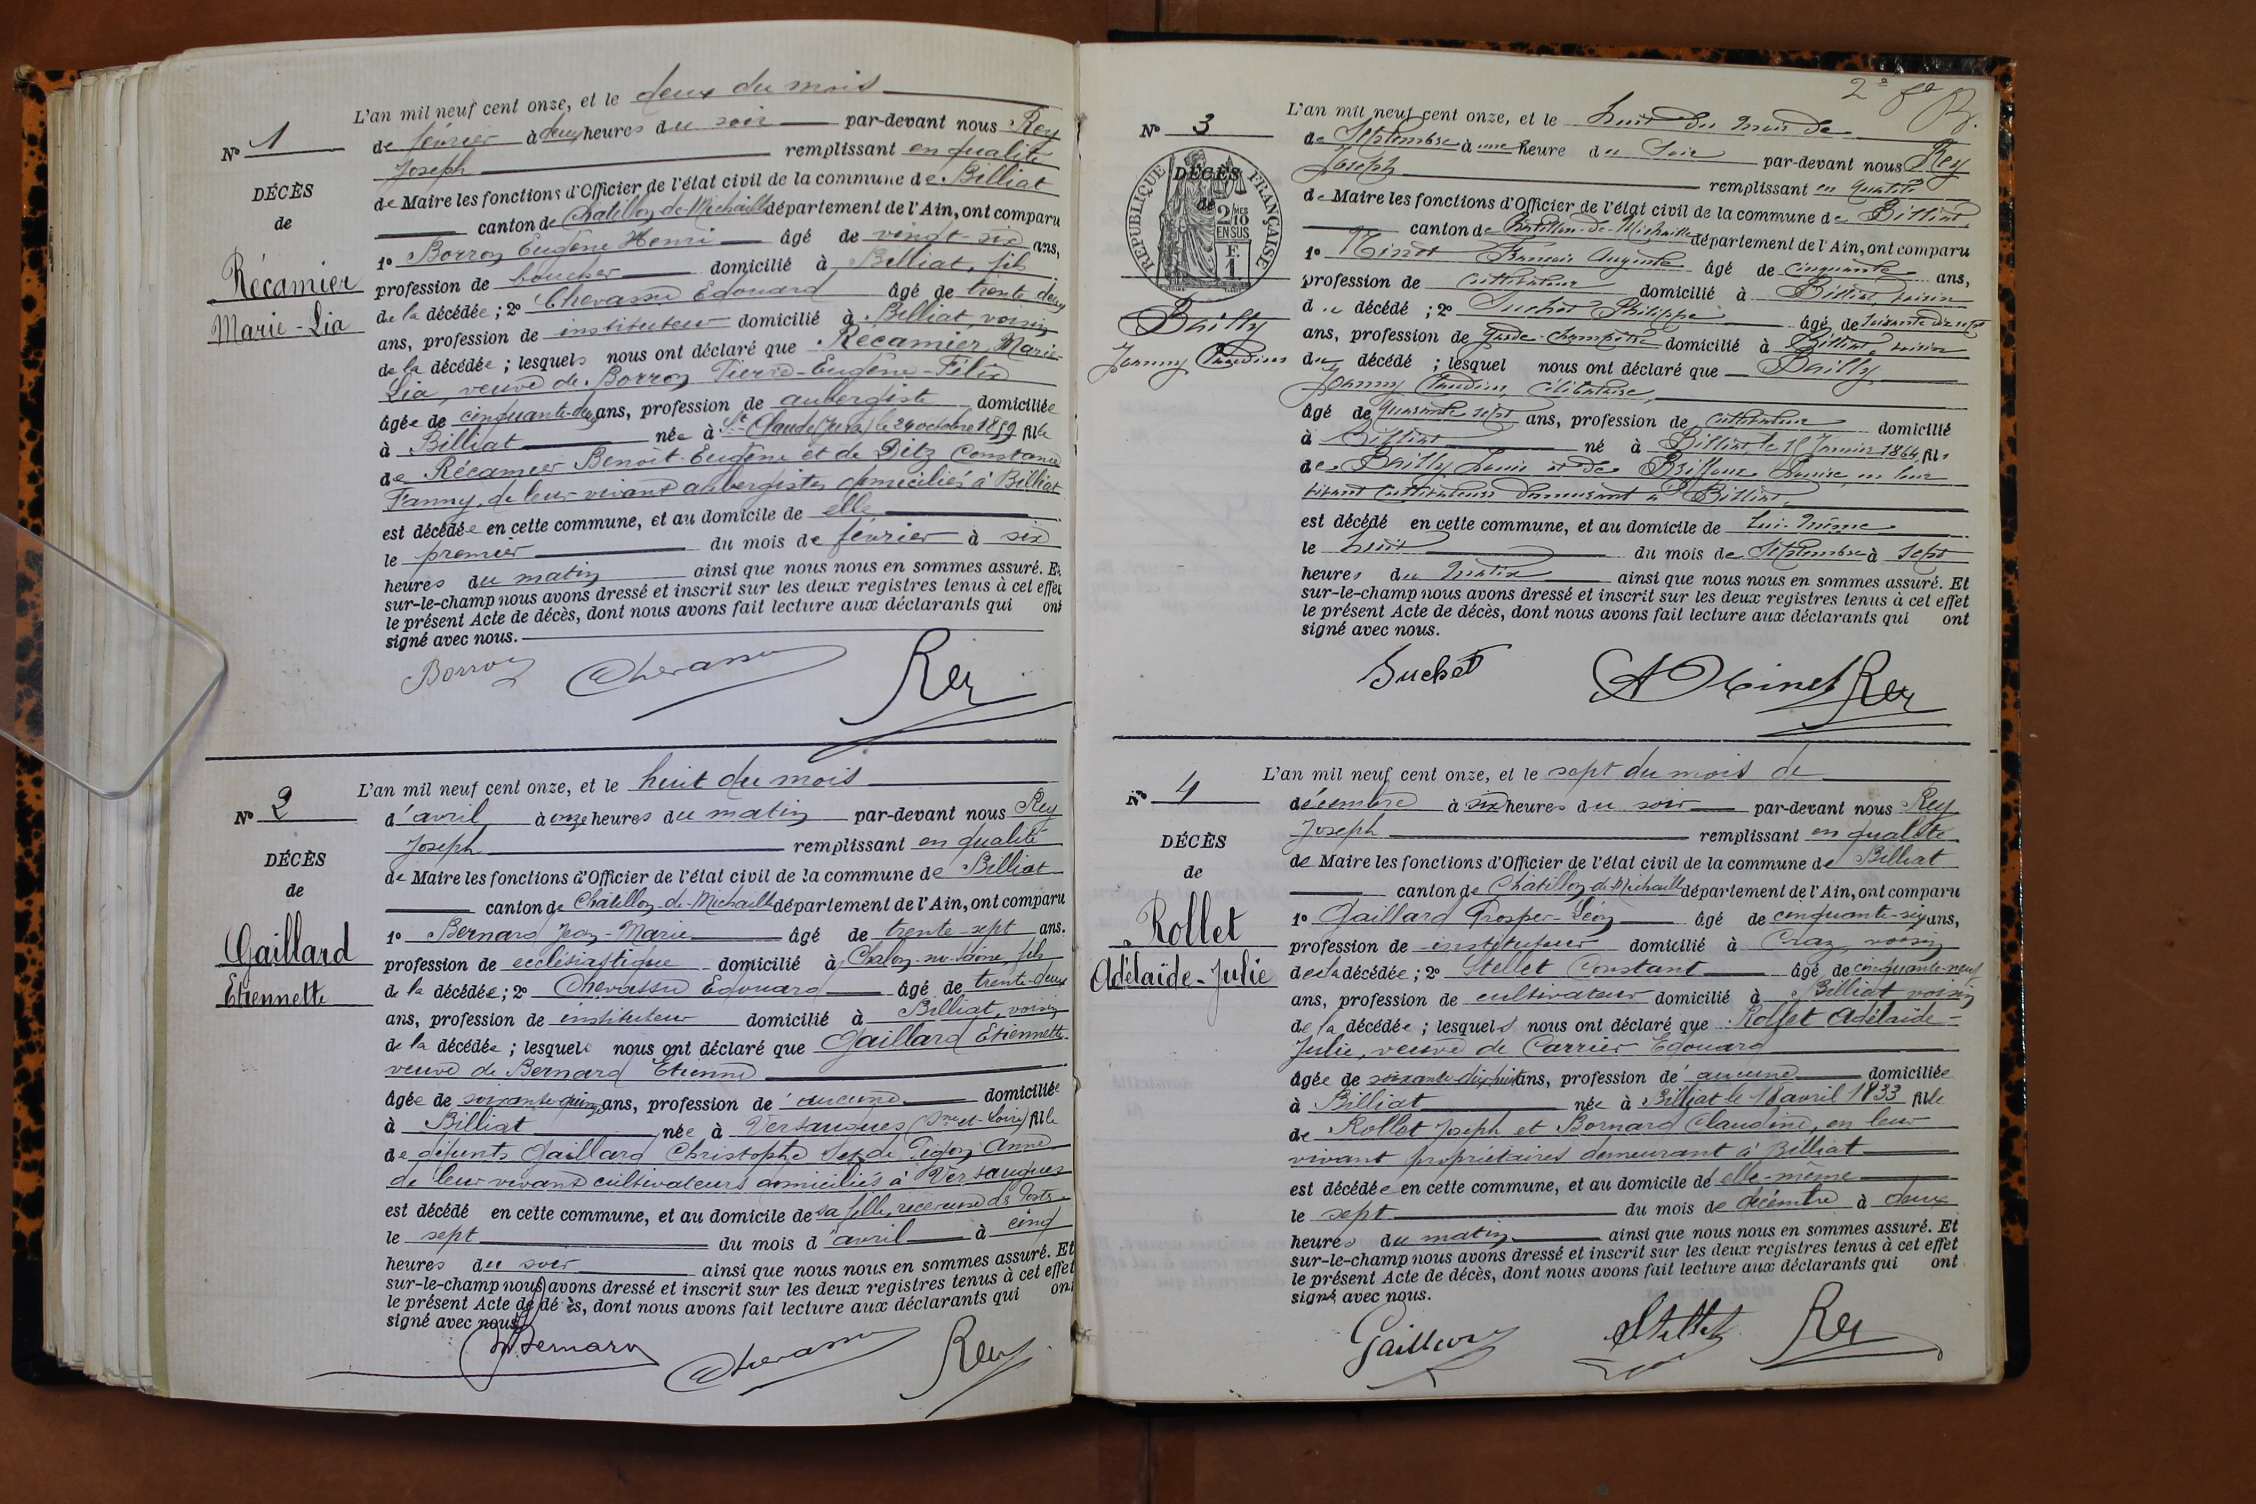 L'an mil neuf cent onze, et le deux du mois
N° 1
de février à deux heures du soir par-devant nous Rey
Joseph remplissant en qualité
DÉCÈS
de Maire les fonctions d'Officier de l'état civil de la commune de Billiat
de
canton de Chatillon-de-Michaille département de l'Ain, ont comparu
1° Borron Eugène Henri âgé de vingt-six ans,
Récamier
profession de boucher domicilié à Billiat, fils
Marie-Lia
de la décédée ; 2° Chevassu Edouard âgé de trente-deux
ans, profession de instituteur domicilié à Billiat, voisin
de la décédée ; lesquels nous ont déclaré que Récamier Marie-
Lia, veuve de Borron Pierre-Eugène-Félix
âgée de cinquante-deux ans, profession de aubergiste domiciliée
à Billiat née à St-Claude (Jura) le 24 octobre 1859 fille
de Récamier Benoit-Eugène et de Ditz Constance
Fanny, de leur vivant aubergistes domiciliés à Billiat
est décédée en cette commune, et au domicile de elle
le premier du mois de février à six
heures du matin ainsi que nous nous en sommes assuré. Et
sur-le-champ nous avons dressé et inscrit sur les deux registres tenus à cet effet
le présent Acte de décès, dont nous avons fait lecture aux déclarants qui ont
signé avec nous.
Borron Chevassu Rey
L'an mil neuf cent onze, et le huit du mois
N° 2
d'avril à onze heures du matin par-devant nous Rey
Joseph remplissant en qualité
DÉCÈS
de Maire les fonctions d'Officier de l'état civil de la commune de Billiat
de
canton de Chatillon-de-Michaille département de l'Ain, ont comparu
Gaillard
1° Bernard Jean-Marie âgé de trente-sept ans.
profession de ecclésiastique domicilié à Chalon-su-Saône, fils
Etiennette
de la décédée ; 2° Chevassu Edouard âgé de trente-deux
ans, profession de instituteur domicilié à Billiat, voisin
de la décédée ; lesquels nous ont déclaré que Gaillard Etiennette
veuve de Bernard Etienne
âgée de soixante-quinze ans, profession de aucune domiciliée
à Billiat née à Versaugues (Sne-et-Loire) fille
de défunts Gaillard Christophe et de Anne
de leur vivant cultivateurs domiciliés à Versaugues
est décédé en cette commune, et au domicile de sa fille, receveuse des Postes
le sept du mois d'avril à cinq
heures du soir ainsi que nous nous en sommes assuré. Et
sur-le-champ nous avons dressé et inscrit sur les deux registres tenus à cet effet
le présent Acte de décès, dont nous avons fait lecture aux déclarants qui ont
signé avec nous.
Bernard Chevassu Rey
2e fo
L'an mil neuf cent onze, et le huit du mois de
N° 3
de Septembre à une heure du Soir par-devant nous Rey
Joseph remplissant en qualité
DÉCÈS
de
RÉPUBLIQUE FRANÇAISE
2/10MES
EN SUS
F.
1
de Maire les fonctions d'Officier de l'état civil de la commune de Billiat
canton de Chatillon-de-Michaille département de l'Ain, ont comparu
1° Minet François Auguste âgé de cinquante ans,
profession de cultivateur domicilié à Billiat, voisin
du décédé ; 2° Suchet Philippe âgé de soixante dix sept
Bailly
ans, profession de Garde-champêtre domicilié à Billiat, voisin
Joanny Claudius
du décédé ; lesquel nous ont déclaré que Bailly
Joanny Claudius, célibataire,
âgé de quarante sept ans, profession de cultivateur domicilié
à Billiat né à Billiat le 15 Janvier 1864 fils
de Bailly Louis et de Louise, en leur
vivant cultivateurs demeurant à Billiat
est décédé en cette commune, et au domicile de lui-même
le huit du mois de Septembre à sept
heures du matin ainsi que nous nous en sommes assuré. Et
sur-le-champ nous avons dressé et inscrit sur les deux registres tenus à cet effet
le présent Acte de décès, dont nous avons fait lecture aux déclarants qui ont
signé avec nous.
Suchet A Minet Rey
L'an mil neuf cent onze, et le sept du mois de
N° 4
décembre à six heures du soir par-devant nous Rey
Joseph remplissant en qualité
DÉCÈS
de Maire les fonctions d'Officier de l'état civil de la commune de Billiat
de
canton de Chatillon-de-Michaille département de l'Ain, ont comparu
Rollet
1° Gaillard Prosper-Léon âgé de cinquante-six ans,
profession de instituteur domicilié à Craz, voisin
Adélaïde-Julie
de la décédée ; 2° Stellet Constant âgé de cinquante-neuf
ans, profession de cultivateur domicilié à Billiat voisin
de la décédée ; lesquels nous ont déclaré que Rollet Adélaïde-
Julie, veuve de Carrier Edouard
âgée de soixante-dix-huit ans, profession de aucune domiciliée
à Billiat née à Billiat le 18 avril 1833 fille
de Rollet Joseph et Bornard Claudine, en leur
vivant propriétaires demeurant à Billiat
est décédée en cette commune, et au domicile de elle-même
le sept du mois de décembre à deux
heures du matin ainsi que nous nous en sommes assuré. Et
sur-le-champ nous avons dressé et inscrit sur les deux registres tenus à cet effet
le présent Acte de décès, dont nous avons fait lecture aux déclarants qui ont
signé avec nous.
Gaillard Stellet Rey